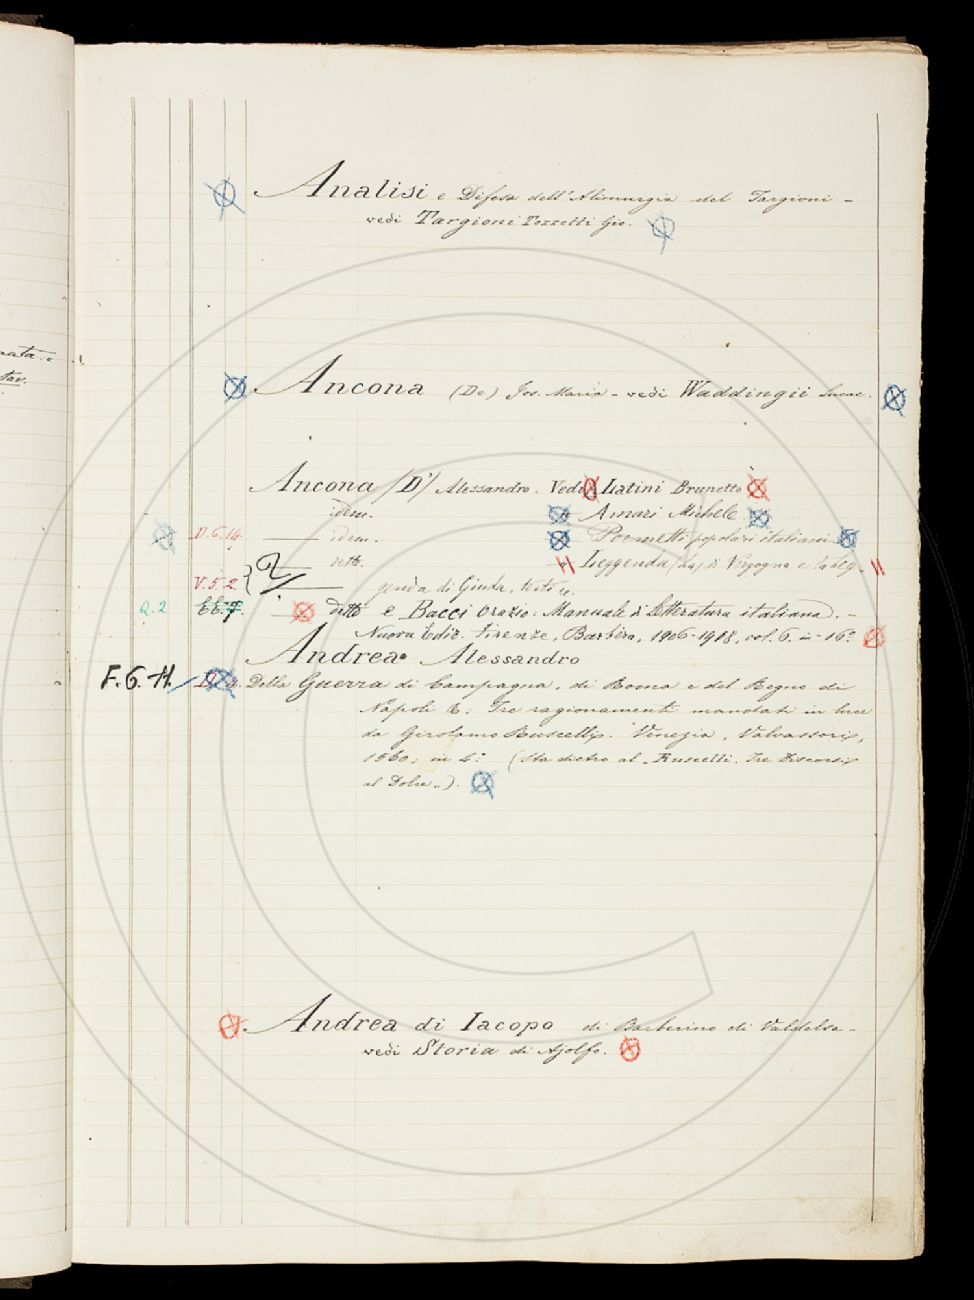 Analisi e Difesa dell'Alimurgia del Targioni -
vedi Targioni Tozzetti Gio.
nata e
Ancona (De) Jos. Maria - vedi Waddingii Lucae.
Ancona (D') Alessandro. Vedi Latini Brunetto
idem. Amari Michele
D.6.14. idem. Poemetti popolari italiani
detto. Leggenda (La) di Vergogna e la leg-
V.5.2. genda di Giuda, testi ec.
Q.2 detto e Bacci Orazio: Manuale di letteratura italiana.
Nuova Ediz. Firenze, Barbèra, 1906-1908, vol. 6, in-16°
Andrea Alessandro
F.6.H. Della Guerra di Campagna, di Roma e del Regno di
Napoli &: Tre ragionamenti mandati in luce
da Girolamo Ruscelli. Venezia, Valvassori,
1560; in 4° (Sta dietro al "Ruscelli. Tre Discorsi
al Dolce").
Andrea di Iacopo di Barberino di Valdelsa -
vedi Storia di Ajolfo.